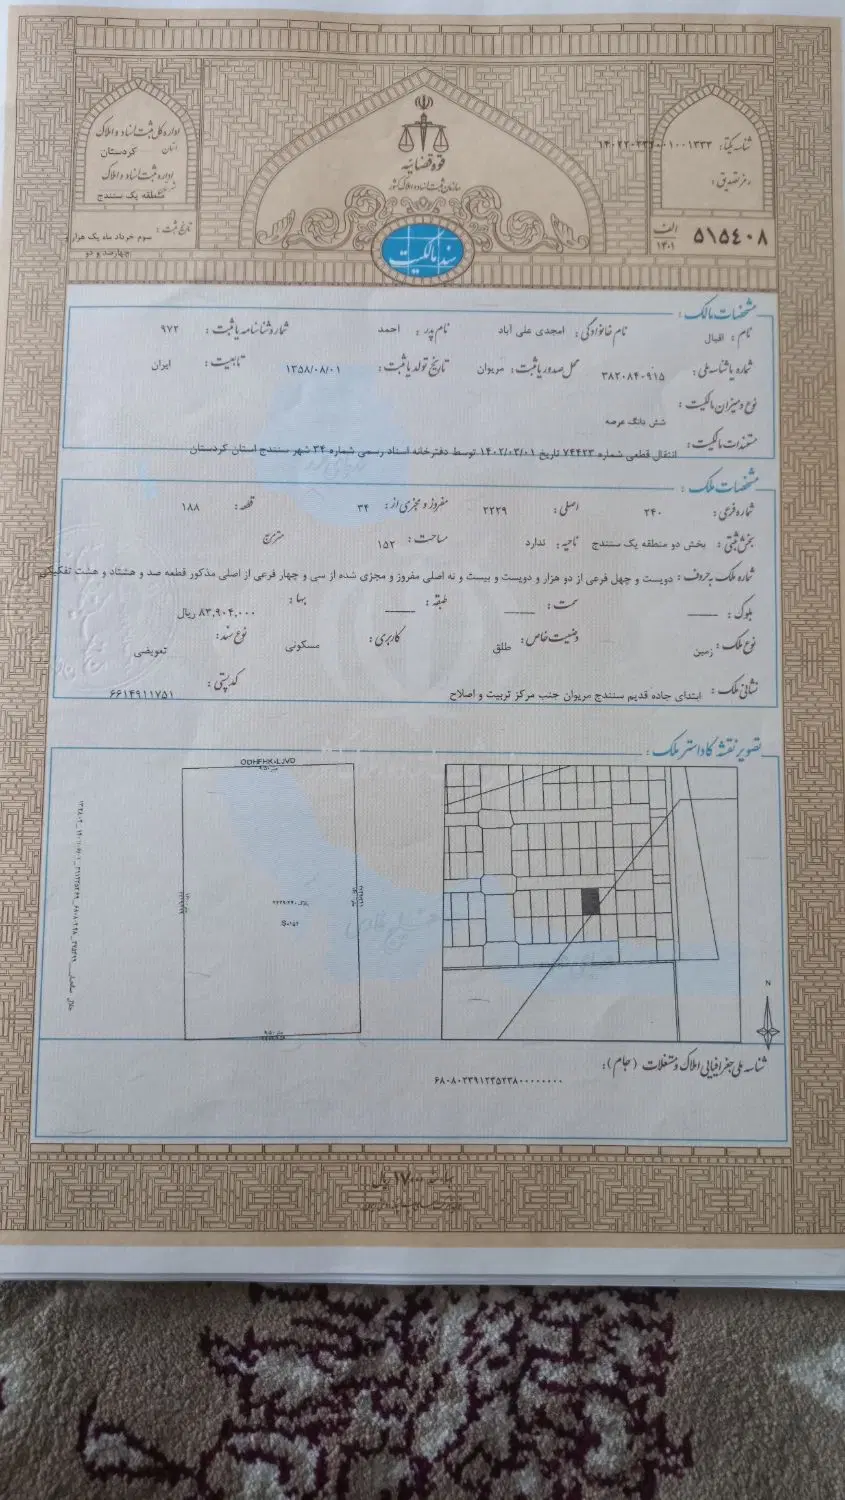 قوه قضائیه
سازمان ثبت اسناد و املاک کشور
سند مالکیت
اداره کل ثبت اسناد و املاک
استان کردستان
اداره ثبت اسناد و املاک
منطقه یک سنندج
تاریخ ثبت: سوم خرداد ماه یک هزار و
چهارصد و دو
شناسه یکتا:
رمز تصدیق:
الف ۵۱۵۴۰۸
۱۴۰۱
مشخصات مالک:
نام: اقبال نام خانوادگی: امجدی علی آباد نام پدر: احمد شماره شناسنامه یا ثبت: ۹۷۲
شماره یا شناسه ملی: ۳۸۲۰۸۴۰۹۱۵ محل صدور یا ثبت: مریوان تاریخ تولد یا ثبت: ۱۳۵۸/۰۸/۰۱ تابعیت: ایران
نوع و میزان مالکیت:
شش دانگ عرصه
مستندات مالکیت: انتقال قطعی شماره ۷۴۴۲۳ تاریخ ۱۴۰۲/۰۳/۰۱ توسط دفترخانه اسناد رسمی شماره ۳۴ شهر سنندج استان کردستان
مشخصات ملک:
شماره فرعی: ۲۴۰ اصلی: ۲۲۲۹ مفروز و مجزی از: ۳۴ قطعه: ۱۸۸
بخش ثبتی: بخش دو منطقه یک سنندج ناحیه: ندارد مساحت: ۱۵۲ متر مربع
شماره ملک به حروف: دویست و چهل فرعی از دو هزار و دویست و بیست و نه اصلی مفروز و مجزی شده از سی و چهار فرعی از اصلی مذکور قطعه صد و هشتاد و هشت تفکیکی
بلوک: ـــــ سمت: ـــــ طبقه: ـــــ بها: ۸۳,۹۰۴,۰۰۰ ریال
نوع ملک: زمین وضعیت خاص: طلق کاربری: مسکونی نوع سند: تعویضی
نشانی ملک: ابتدای جاده قدیم سنندج مریوان جنب مرکز تربیت و اصلاح کد پستی: ۶۶۱۴۹۱۱۷۵۱
تصویر نقشه کاداستر ملک:
S=۱۵۲
N
شناسه ملی جغرافیایی املاک و مستغلات (جام):